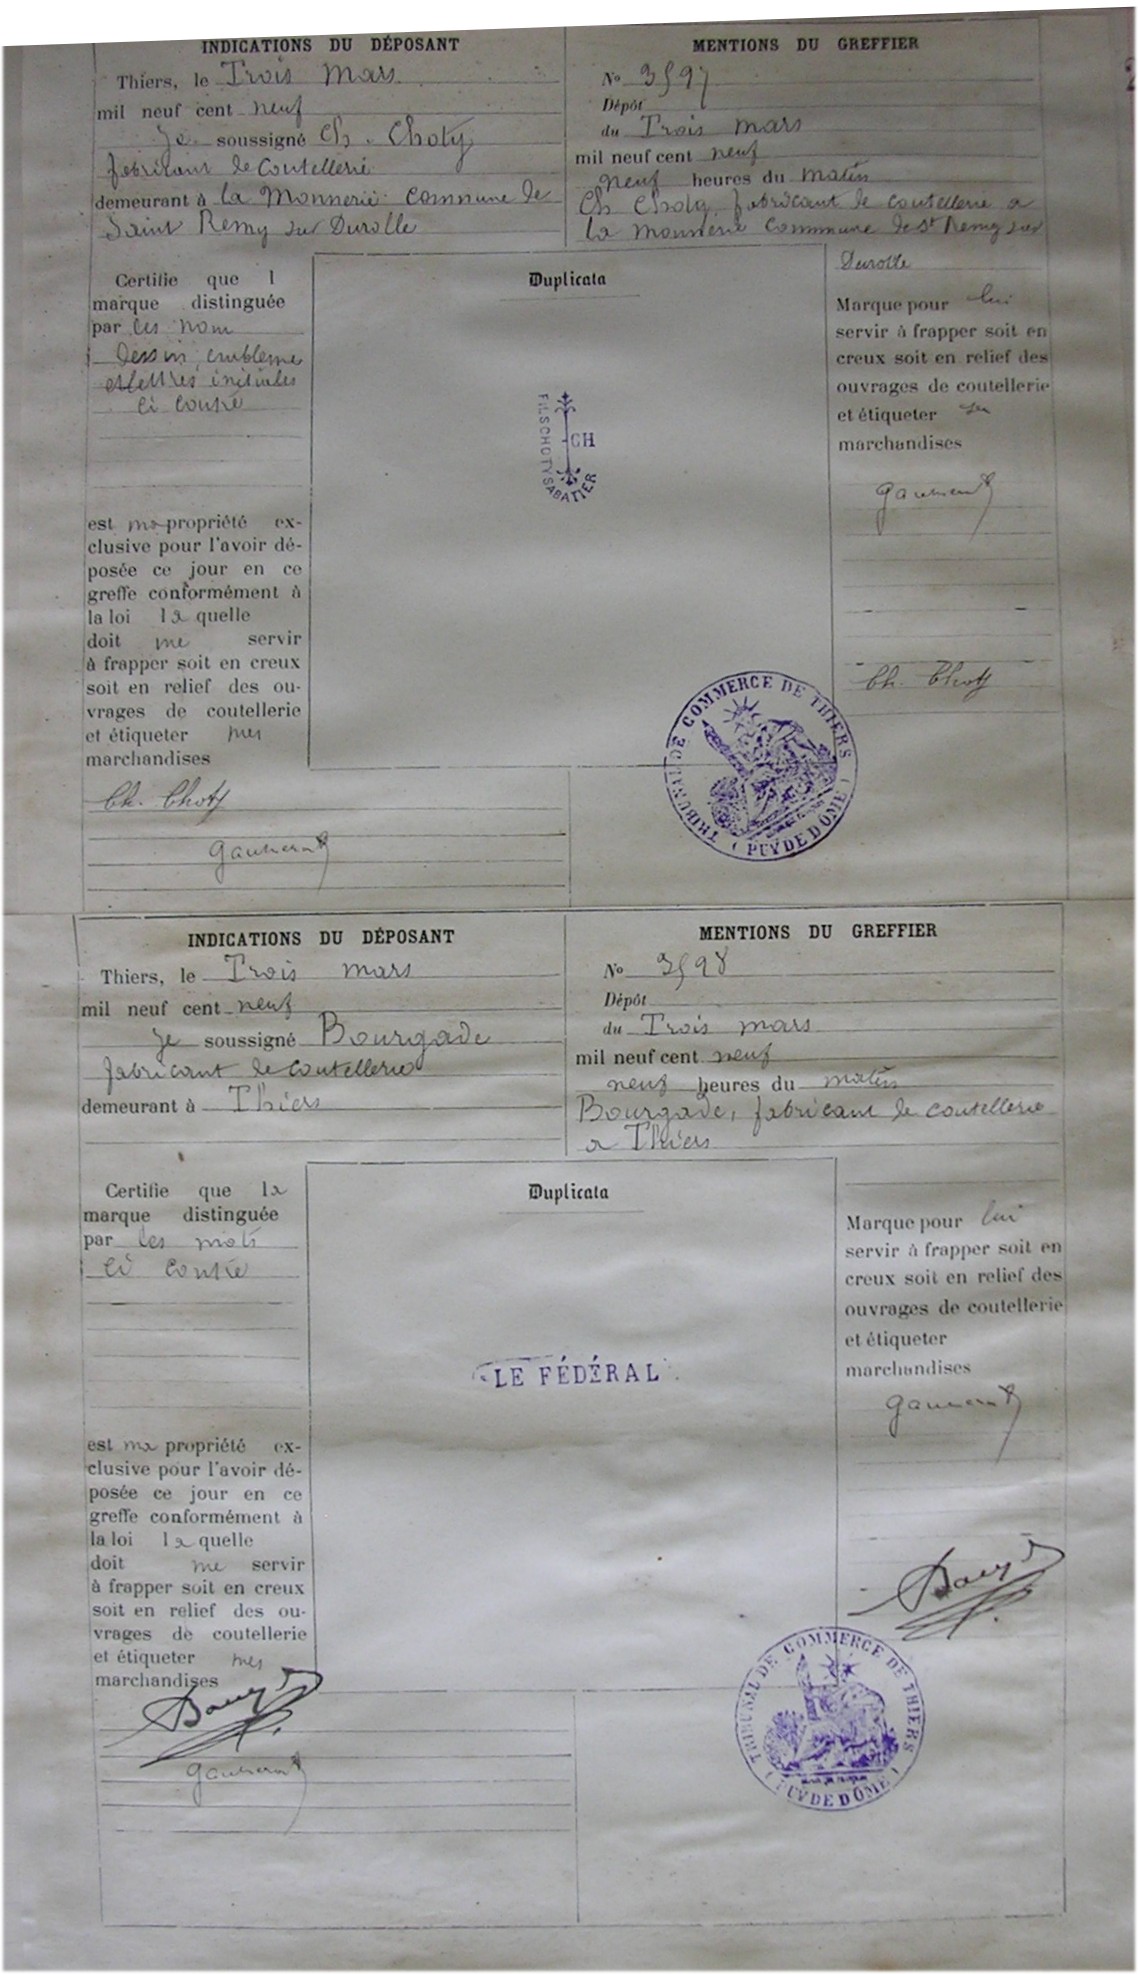 INDICATIONS DU DÉPOSANT
Thiers, le Trois Mars
mil neuf cent neuf
Je soussigné Ch. Choty
fabricant de coutellerie
demeurant à la Monnerie commune de
Saint Remy sur Durolle
MENTIONS DU GREFFIER
No 3597
Dépôt
du Trois mars
mil neuf cent neuf
neuf heures du matin
Ch Choty fabricant de coutellerie a
la monnerie commune de St Remy sur
Durolle
Certifie que l
marque distinguée
par les nom
dessin, embleme
et lettres initiales
ci contre
est ma propriété ex-
clusive pour l'avoir dé-
posée ce jour en ce
greffe conformément à
la loi la quelle
doit me servir
à frapper soit en creux
soit en relief des ou-
vrages de coutellerie
et étiqueter mes
marchandises
Ch. Choty
Duplicata
FILSCHOTY SABATIER
CH
Marque pour lui
servir à frapper soit en
creux soit en relief des
ouvrages de coutellerie
et étiqueter ses
marchandises
Ch. Choty
TRIBUNAL DE COMMERCE DE THIERS
(PUY DE DÔME)
INDICATIONS DU DÉPOSANT
Thiers, le Trois mars
mil neuf cent neuf
Je soussigné Bourgade
fabricant de coutellerie
demeurant à Thiers
MENTIONS DU GREFFIER
No 3598
Dépôt
du Trois mars
mil neuf cent neuf
neuf heures du matin
Bourgade, fabricant de coutellerie
a Thiers
Certifie que la
marque distinguée
par les mots
ci contre
est ma propriété ex-
clusive pour l'avoir dé-
posée ce jour en ce
greffe conformément à
la loi la quelle
doit me servir
à frapper soit en creux
soit en relief des ou-
vrages de coutellerie
et étiqueter mes
marchandises
Duplicata
LE FÉDÉRAL
Marque pour lui
servir à frapper soit en
creux soit en relief des
ouvrages de coutellerie
et étiqueter
marchandises
TRIBUNAL DE COMMERCE DE THIERS
(PUY DE DÔME)